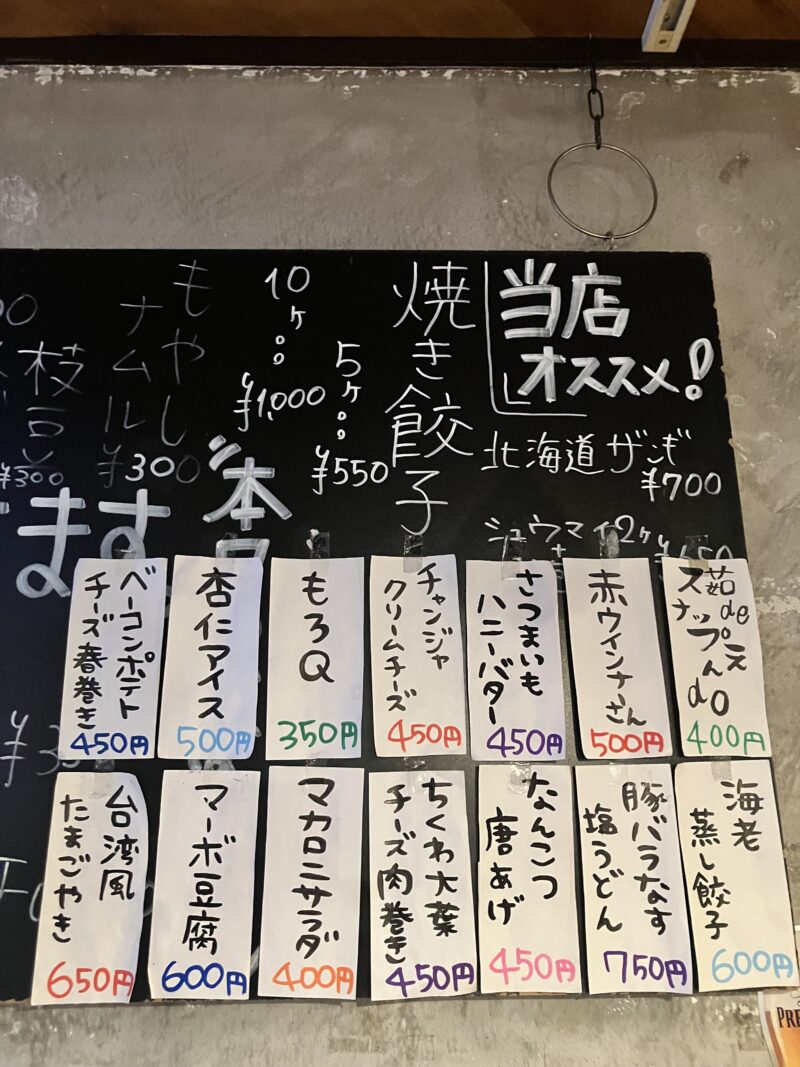 当店
オススメ!
北海道ザンギ
¥700
シュウマイ2ヶ
焼き餃子
5ヶ
¥550
10ヶ
¥1,000
もやし
ナムル
¥300
枝豆
¥300
本日
ます
茹de
スナップえん
do
400円
赤ウインナーさん
500円
さつまいも
ハニーバター
450円
チャンジャ
クリームチーズ
450円
もろQ
350円
杏仁アイス
500円
ベーコンポテト
チーズ春巻き
450円
海老
蒸し餃子
600円
豚バラなす
塩うどん
750円
なんこつ
唐あげ
450円
ちくわ大葉
チーズ肉巻き
450円
マカロニサラダ
400円
マーボ豆腐
600円
台湾風
たまごやき
650円
PRE